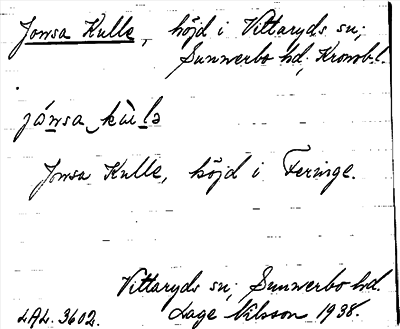 Jonsa Kulle, höjd i Vittaryds sn;
Sunnerbo hd, Kronob. l.
Jonsa Kulle, höjd i Feringe.
Vittaryds sn; Sunnerbo hd.
LAL. 3602. Lage Nilsson 1938.